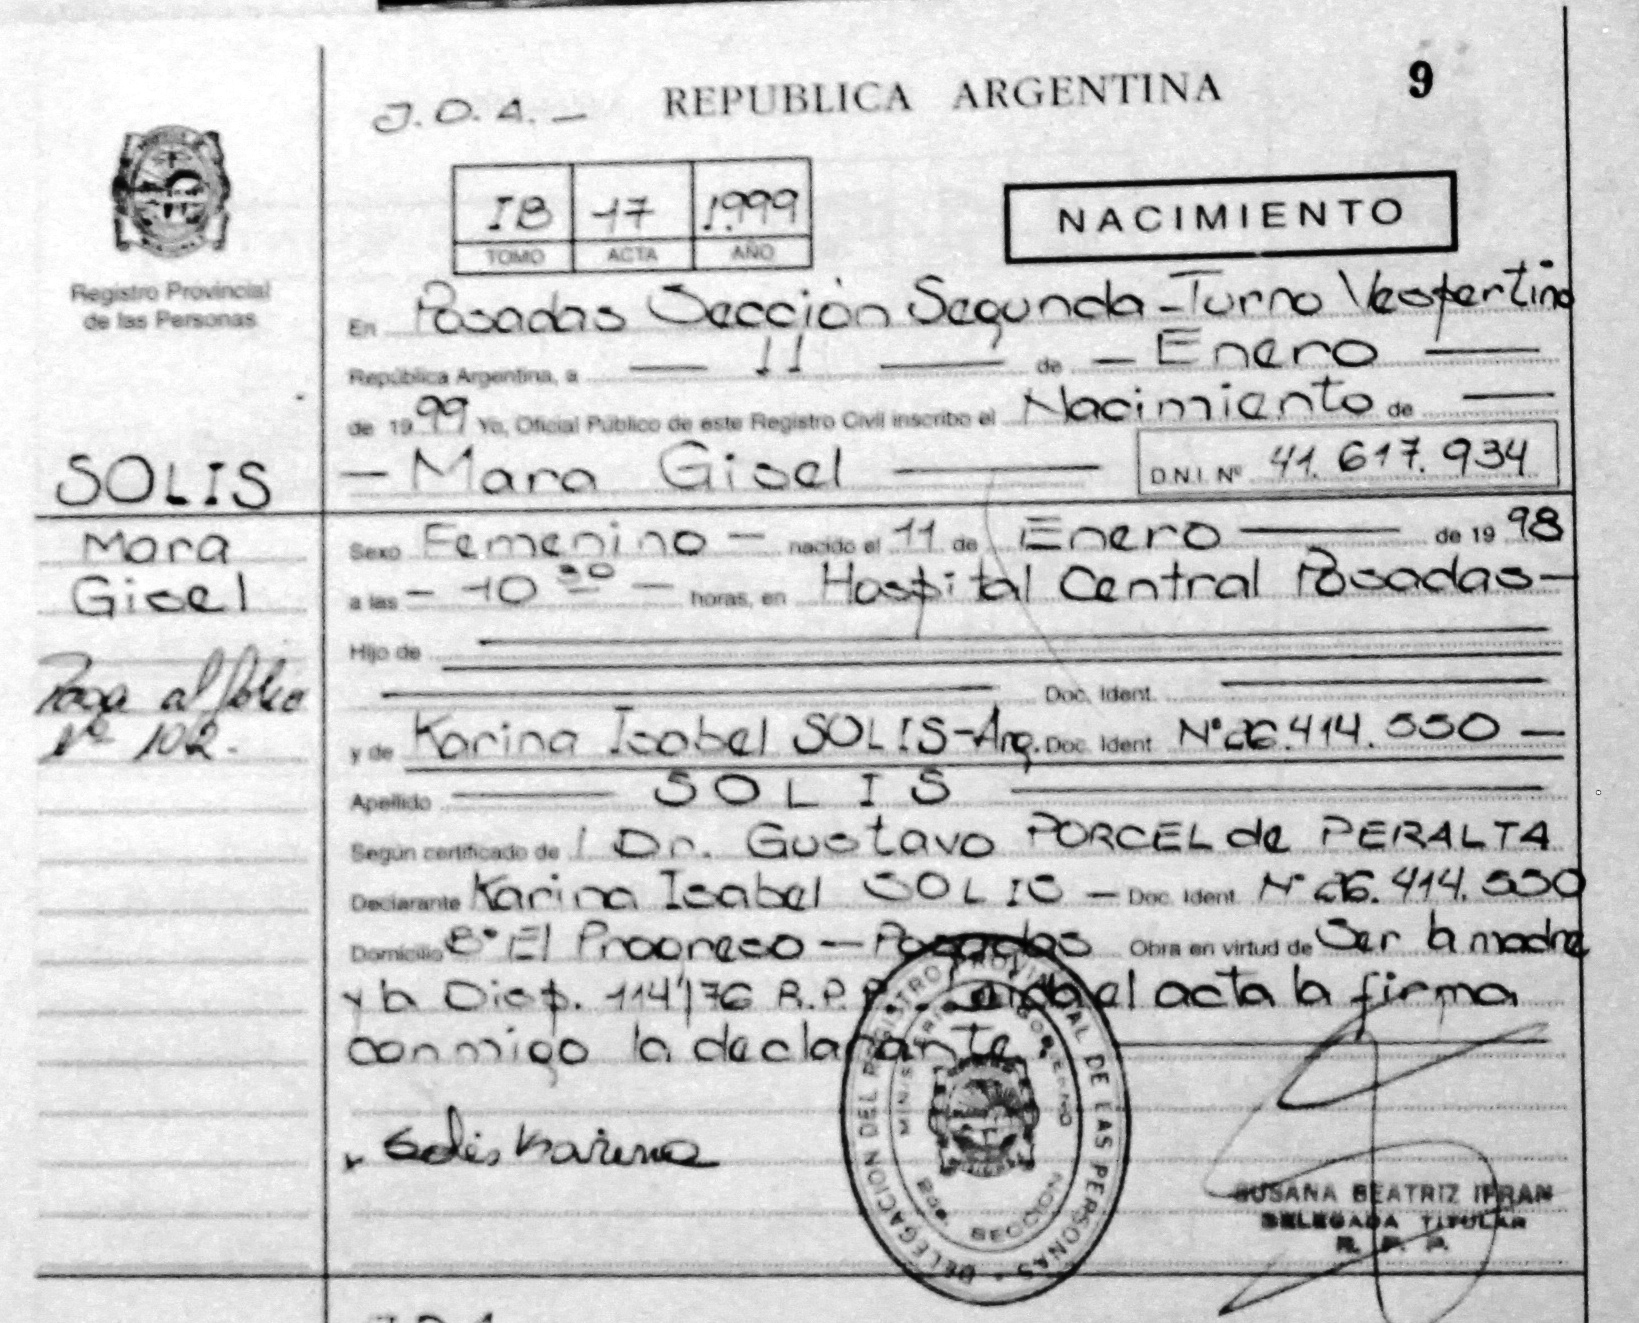 REPUBLICA ARGENTINA
9
J.O.A. —
IB 17 1.999
TOMO ACTA AÑO
NACIMIENTO
Registro Provincial
de las Personas
En Posadas Sección Segunda - Turno Vespertino
República Argentina, a — 11 — de — Enero —
de 1999 Yo, Oficial Público de este Registro Civil inscribo el Nacimiento de —
— Mara Gisel — D.N.I. Nº 41.617.934
SOLIS
Mara
Gisel
Pasa al folio
Nº 102.
Sexo Femenino — nacido el 11 de Enero — de 1998
a las — 10 30 — horas, en Hospital Central Posadas —
Hijo de
Doc. Ident.
y de Karina Isabel SOLIS - Arg. Doc. Ident. Nº 26.414.550 —
Apellido — SOLIS —
Según certificado de Dr. Gustavo PORCEL de PERALTA
Declarante Karina Isabel SOLIS — Doc. Ident. Nº 26.414.550
Domicilio Bº El Progreso — Posadas Obra en virtud de Ser la madre
y la Disp. 114/76 R.P.P. Leída el acta la firma
conmigo la declarante.
Solis Karina
DELEGACION DEL REGISTRO PROVINCIAL DE LAS PERSONAS
MINISTERIO GOBIERNO
2da. SECCION
SUSANA BEATRIZ IFRAN
DELEGADA TITULAR
R. P. P.
J.O.A.